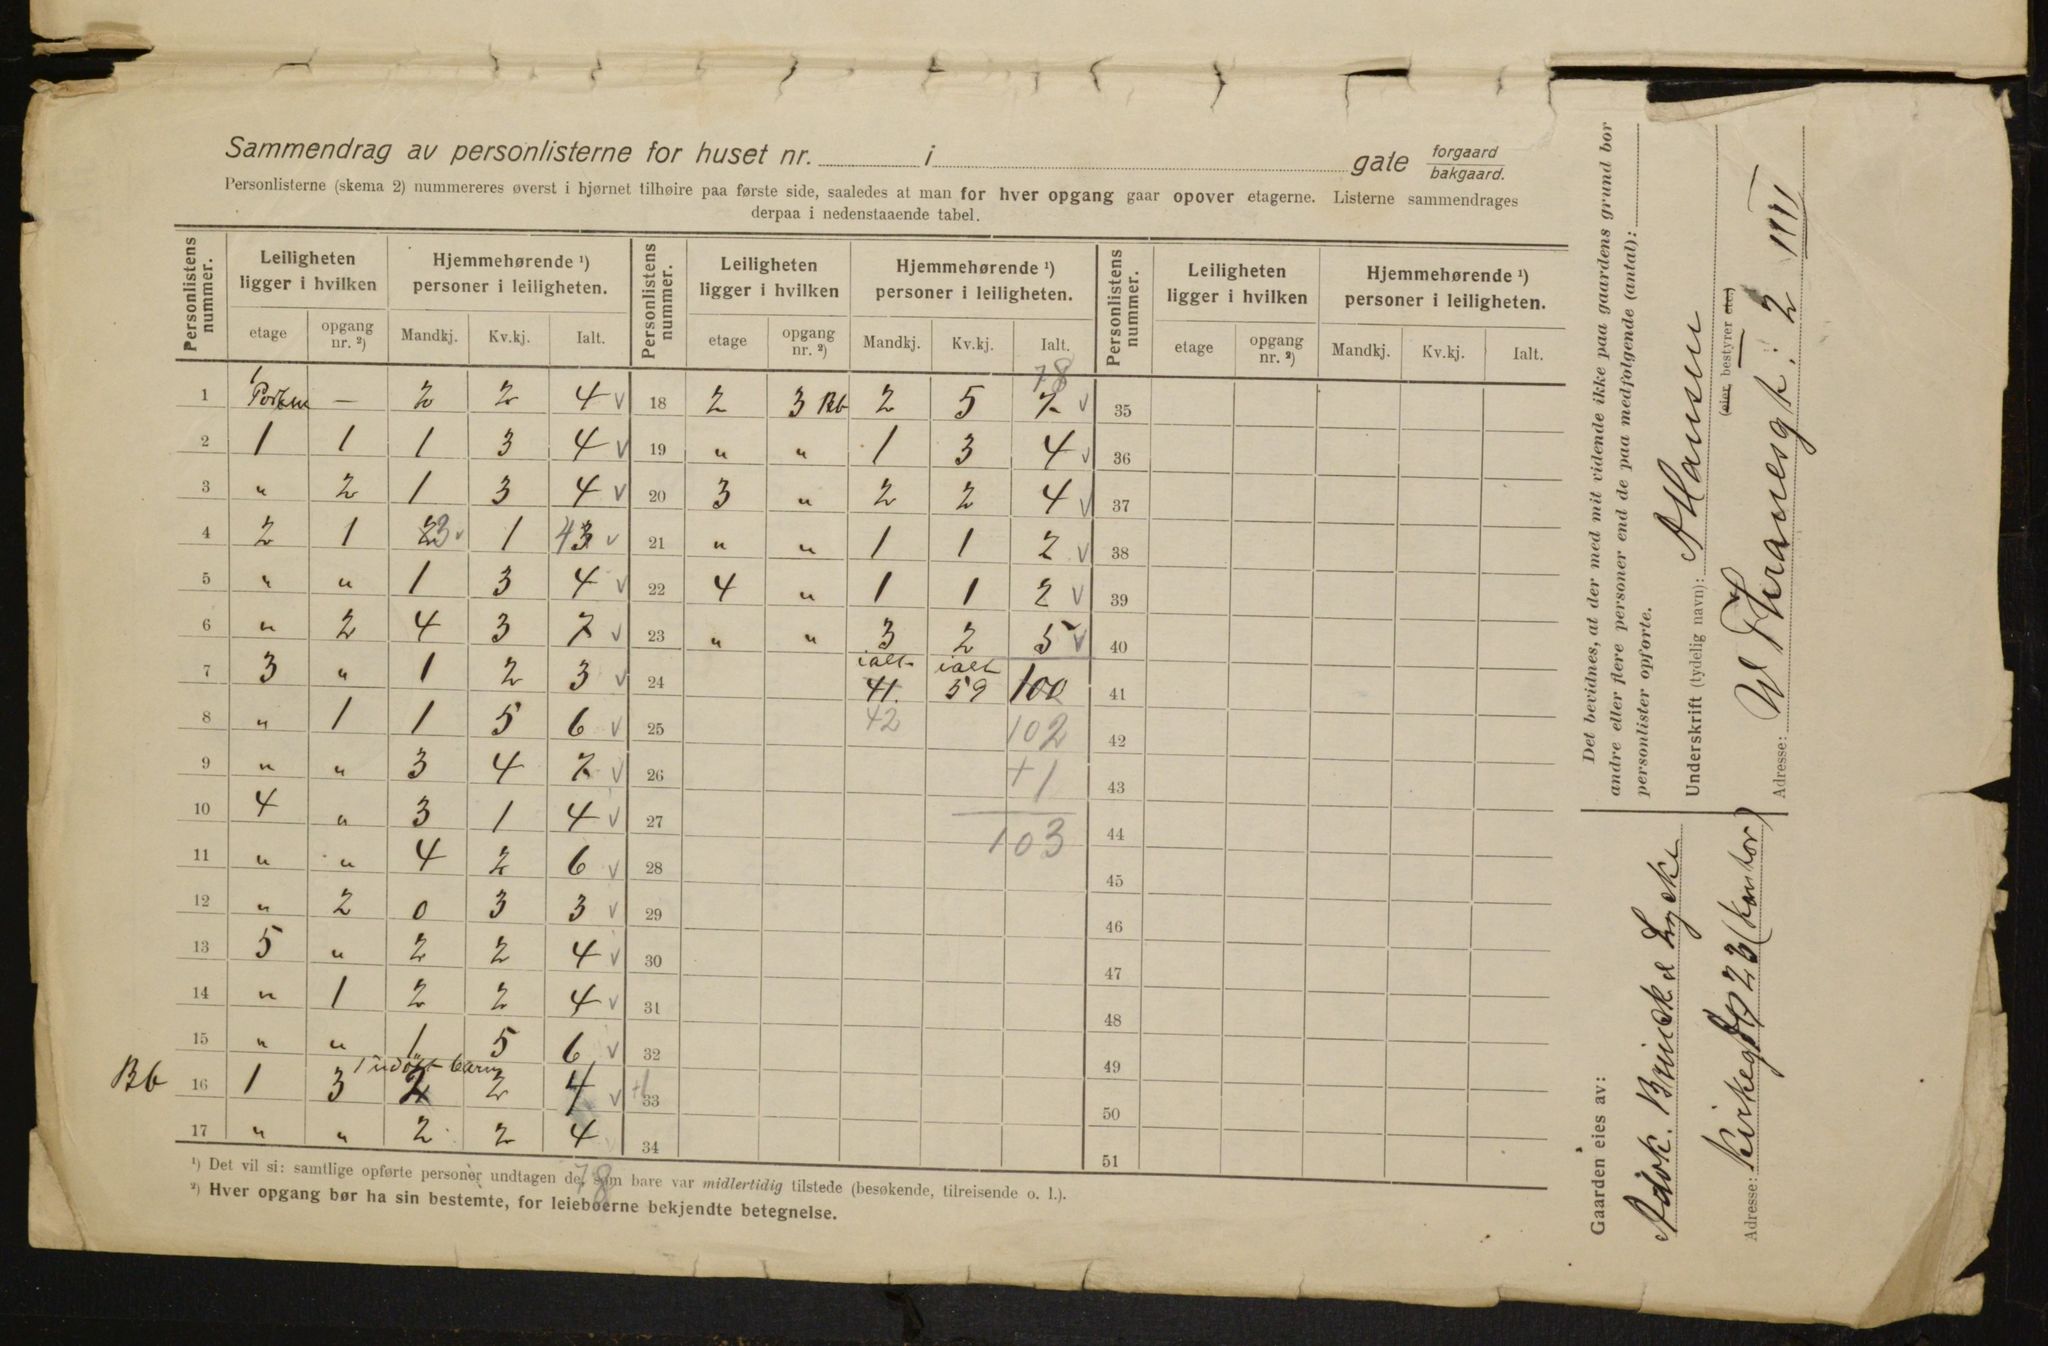 Sammendrag av personlisterne for huset nr. i gate forgaard bakgaard.
Personlisterne (skema 2) nummereres øverst i hjørnet tilhøire paa første side, saaledes at man for hver opgang gaar opover etagerne. Listerne sammendrages
derpaa i nedenstaaende tabel.
Personlistens nummer. Leiligheten ligger i hvilken Hjemmehørende ¹) personer i leiligheten. Personlistens nummer. Leiligheten ligger i hvilken Hjemmehørende ¹) personer i leiligheten. Personlistens nummer. Leiligheten ligger i hvilken Hjemmehørende ¹) personer i leiligheten.
etage opgang nr. ²) Mandkj. Kv.kj. Ialt. etage opgang nr. ²) Mandkj. Kv.kj. Ialt. etage opgang nr. ²) Mandkj. Kv.kj. Ialt.
78
1 — 2 2 4 v 18 2 3 Bb 2 5 7 v 35
2 1 1 1 3 4 v 19 " " 1 3 4 v 36
3 " 2 1 3 4 v 20 3 " 2 2 4 v 37
4 2 1 23 v 1 43 v 21 " " 1 1 2 v 38
5 " " 1 3 4 v 22 4 " 1 1 2 v 39
6 " 2 4 3 7 v 23 " " 3 2 5 v 40
7 3 " 1 2 3 v 24 ialt 41. ialt 59 100 41
8 " 1 1 5 6 v 25 42 102 42
9 " " 3 4 7 v 26 +1 43
10 4 " 3 1 4 v 27 103 44
11 " " 4 2 6 v 28 45
12 " 2 0 3 3 v 29 46
13 5 " 2 2 4 v 30 47
14 " 1 2 2 4 v 31 48
15 " " 1 5 6 v 32 49
1 udøbt barn
Bb 16 1 3 2 2 4 v +1 33 50
17 " " 2 2 4 34 51
78
¹) Det vil si: samtlige opførte personer undtagen de, som bare var midlertidig tilstede (besøkende, tilreisende o. l.).
²) Hver opgang bør ha sin bestemte, for leieboerne bekjendte betegnelse.
Det bevidnes, at der med mit vidende ikke paa gaardens grund bor
andre eller flere personer end de paa medfølgende (antal):
personlister opførte.
Underskrift (tydelig navn): A Hansen
(eier, bestyrer etc.)
Adresse: M Thranesgt. 2 IIII
Gaarden eies av:
Adok. Brinck & Lycke
Adresse: Kirkegt 23 (Kontor)